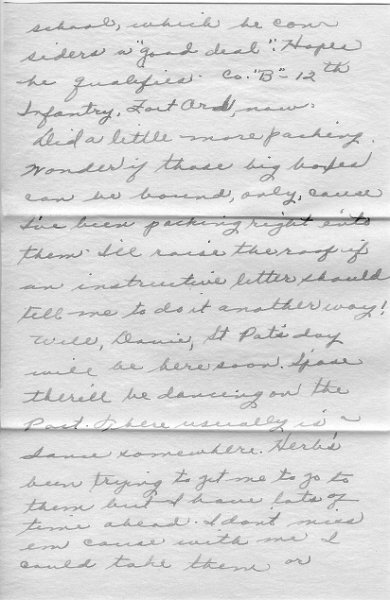 school, which he con-
siders a "good deal". Hopes
he qualifies. Co. "B" - 12th
Infantry, Fort Ord, now.
Did a little more packing.
Wonder if those big boxes
can be bound, only, cause
I've been packing right into
them. I'll raise the roof if
an instructive letter should
tell me to do it another way!
Well, Dovie, St Pat's day
will be here soon. Spose
there'll be dancing on the
Post. There usually is a
dance somewhere. Herb's
been trying to get me to go to
them but I have lots of
time ahead. I don't miss
em cause with me I
could take them or